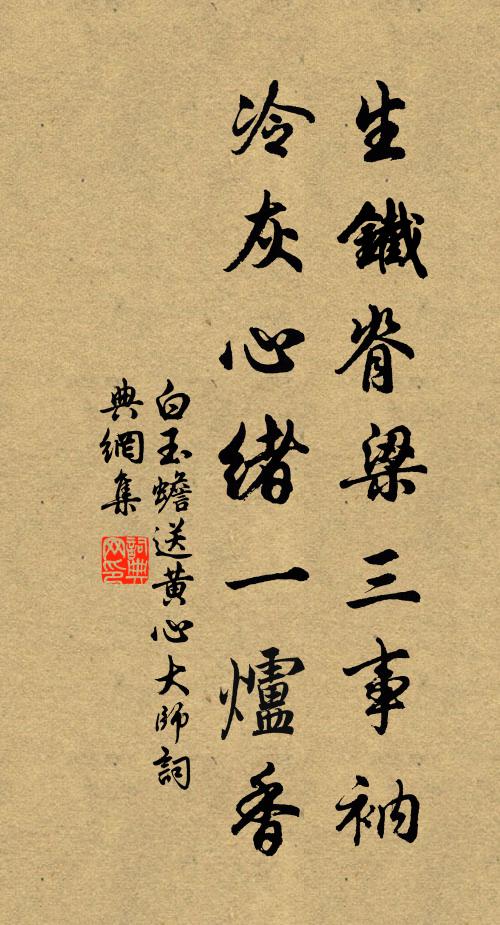 生鐵脊梁三事衲
冷灰心緒一爐香
白玉蟾送黄心大師詞
典網集
詞典网印